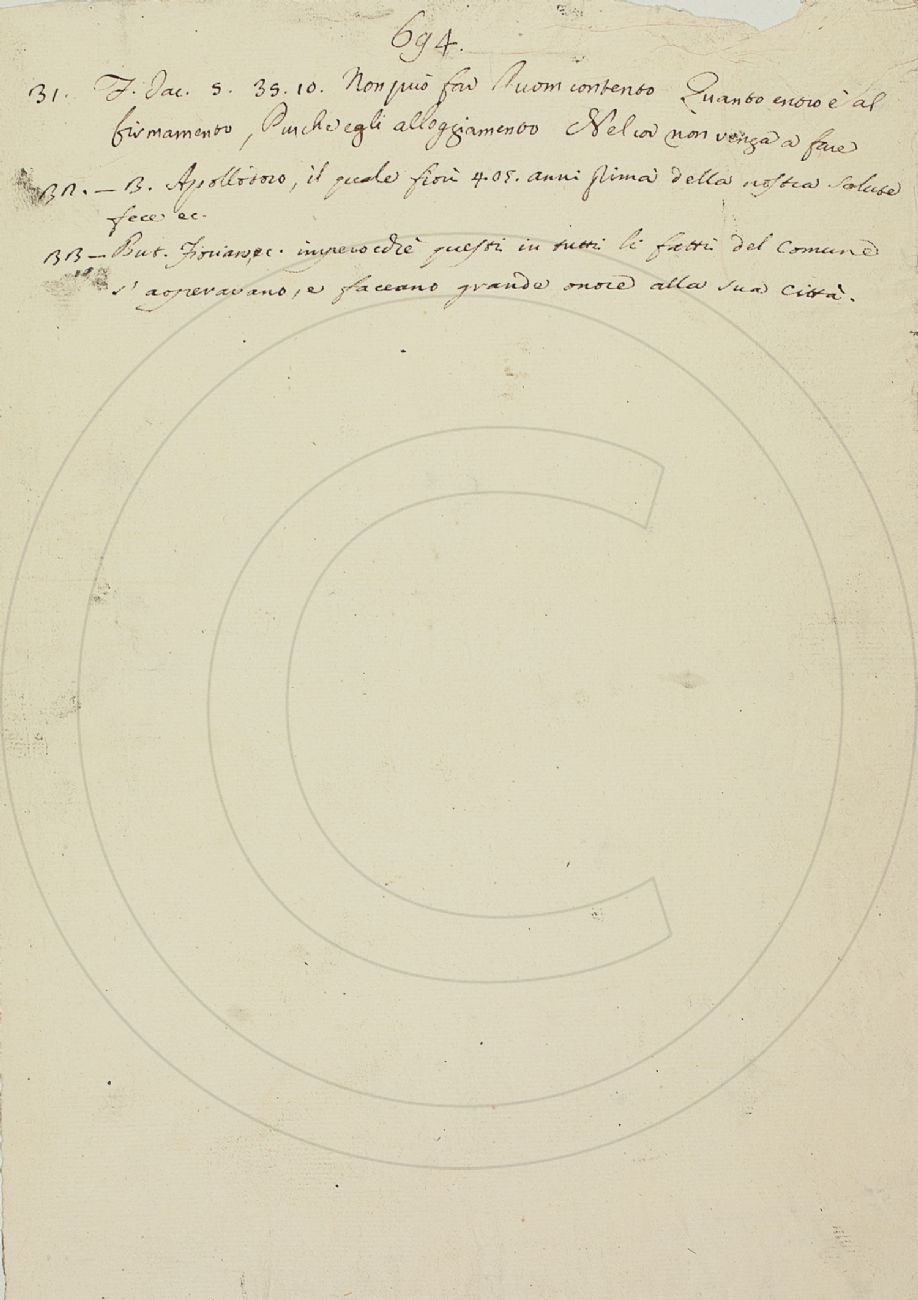 694.
31. F. Jac. 5. 35. 10. Non può far l'uom contento Quanto entro è al
firmamento, Purché egli alloggiamento Nel cor non venga a fare
32. — B. Apollotoro, il quale fiorì 405. anni prima della nostra salute
fece ec.
33 — But. ec. imperocchè questi in tutti li fatti del Comune
s' aoperavano, e faceano grande onore alla sua Città.